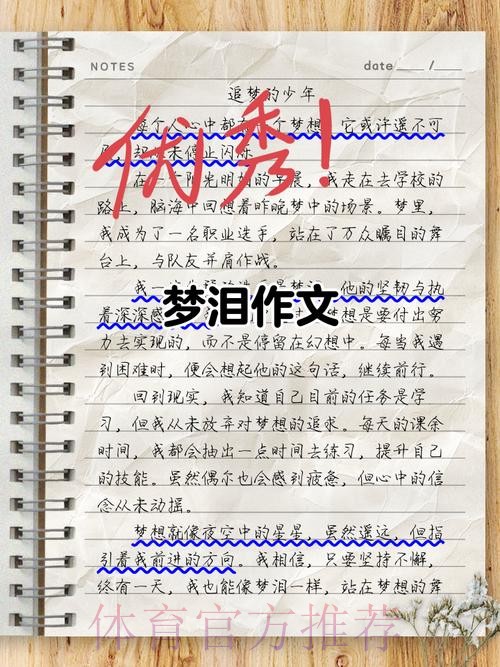 NOTES
date ___ / ___
追梦的少年
每个人心中都有一个梦想，它或许遥不可
却 未停止闪烁
优秀！
在一个阳光明媚的早晨，我走在去学校的
路上，脑海中回想着昨晚梦中的场景。梦里，
我成为了一名职业选手，站在了万众瞩目的舞
台上，与队友并肩作战。
我一 他的坚韧与执
着深深感 梦想是要付出努
梦泪作文
力去实现的，而不是停留在幻想中。每当我遇
到困难时，便会想起他的这句话，继续前行。
回到现实，我知道自己目前的任务是学
习，但我从未放弃对梦想的追求。每天的课余
时间，我都会抽出一点时间去练习，提升自己
的技能。虽然偶尔也会感到疲惫，但心中的信
念从未动摇。
梦想就像夜空中的星星，虽然遥远，但指
引着我前进的方向。我相信，只要坚持不懈，
终有一天，我也能像梦泪一样，站在梦想的舞
体育官方推荐